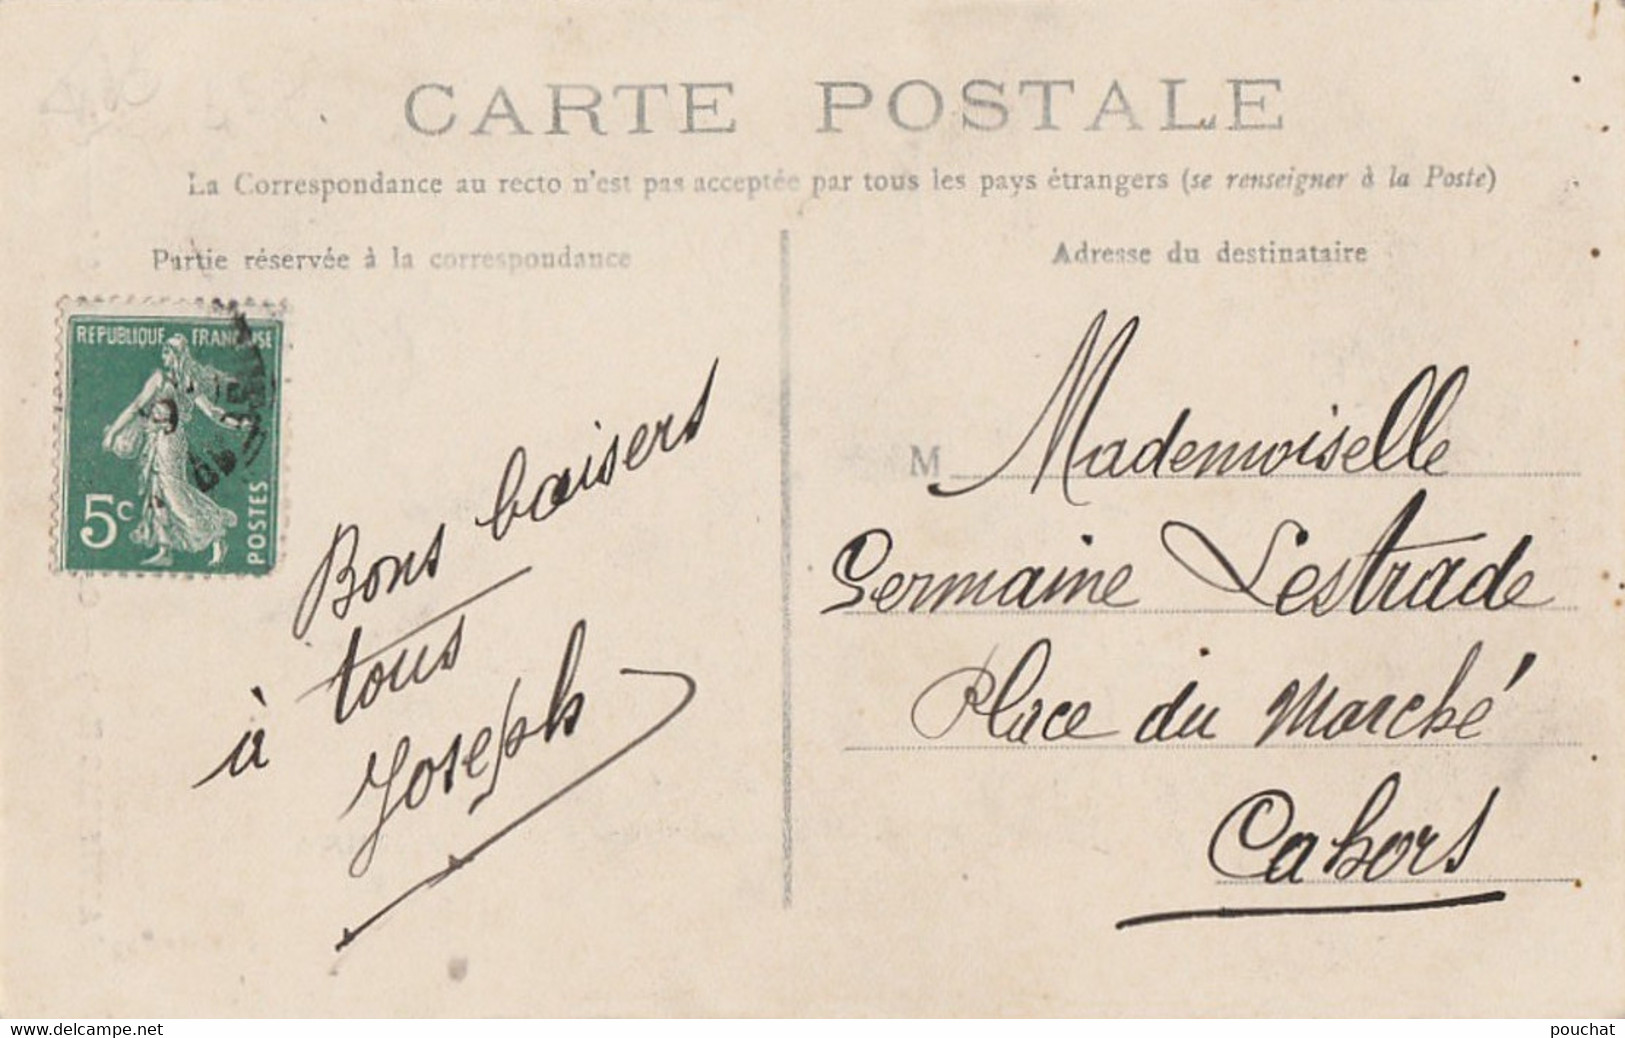 CARTE POSTALE
La Correspondance au recto n'est pas acceptée par tous les pays étrangers (se renseigner à la Poste)
Partie réservée à la correspondance
Adresse du destinataire
REPUBLIQUE FRANÇAISE
5c
POSTES
Bons baisers
à tous
Joseph
M Mademoiselle
Germaine Lestrade
Place du Marché
Cahors
www.delcampe.net
pouchat